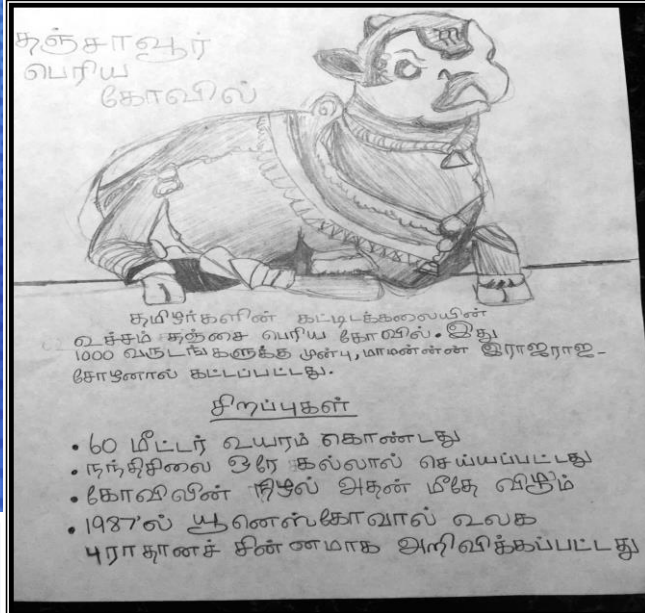 தஞ்சாவூர்
பெரிய
கோவில்
தமிழர்களின் கட்டிடக்கலையின்
உச்சம் தஞ்சை பெரிய கோவில். இது
1000 வருடங்களுக்கு முன்பு, மாமன்னன் இராஜராஜ-
சோழனால் கட்டப்பட்டது.
சிறப்புகள்
• 60 மீட்டர் உயரம் கொண்டது
• நந்திசிலை ஒரே கல்லால் செய்யப்பட்டது
• கோவிலின் நிழல் அதன் மீதே விழும்
• 1987'ல் யூனெஸ்கோவால் உலக
புராதானச் சின்னமாக அறிவிக்கப்பட்டது